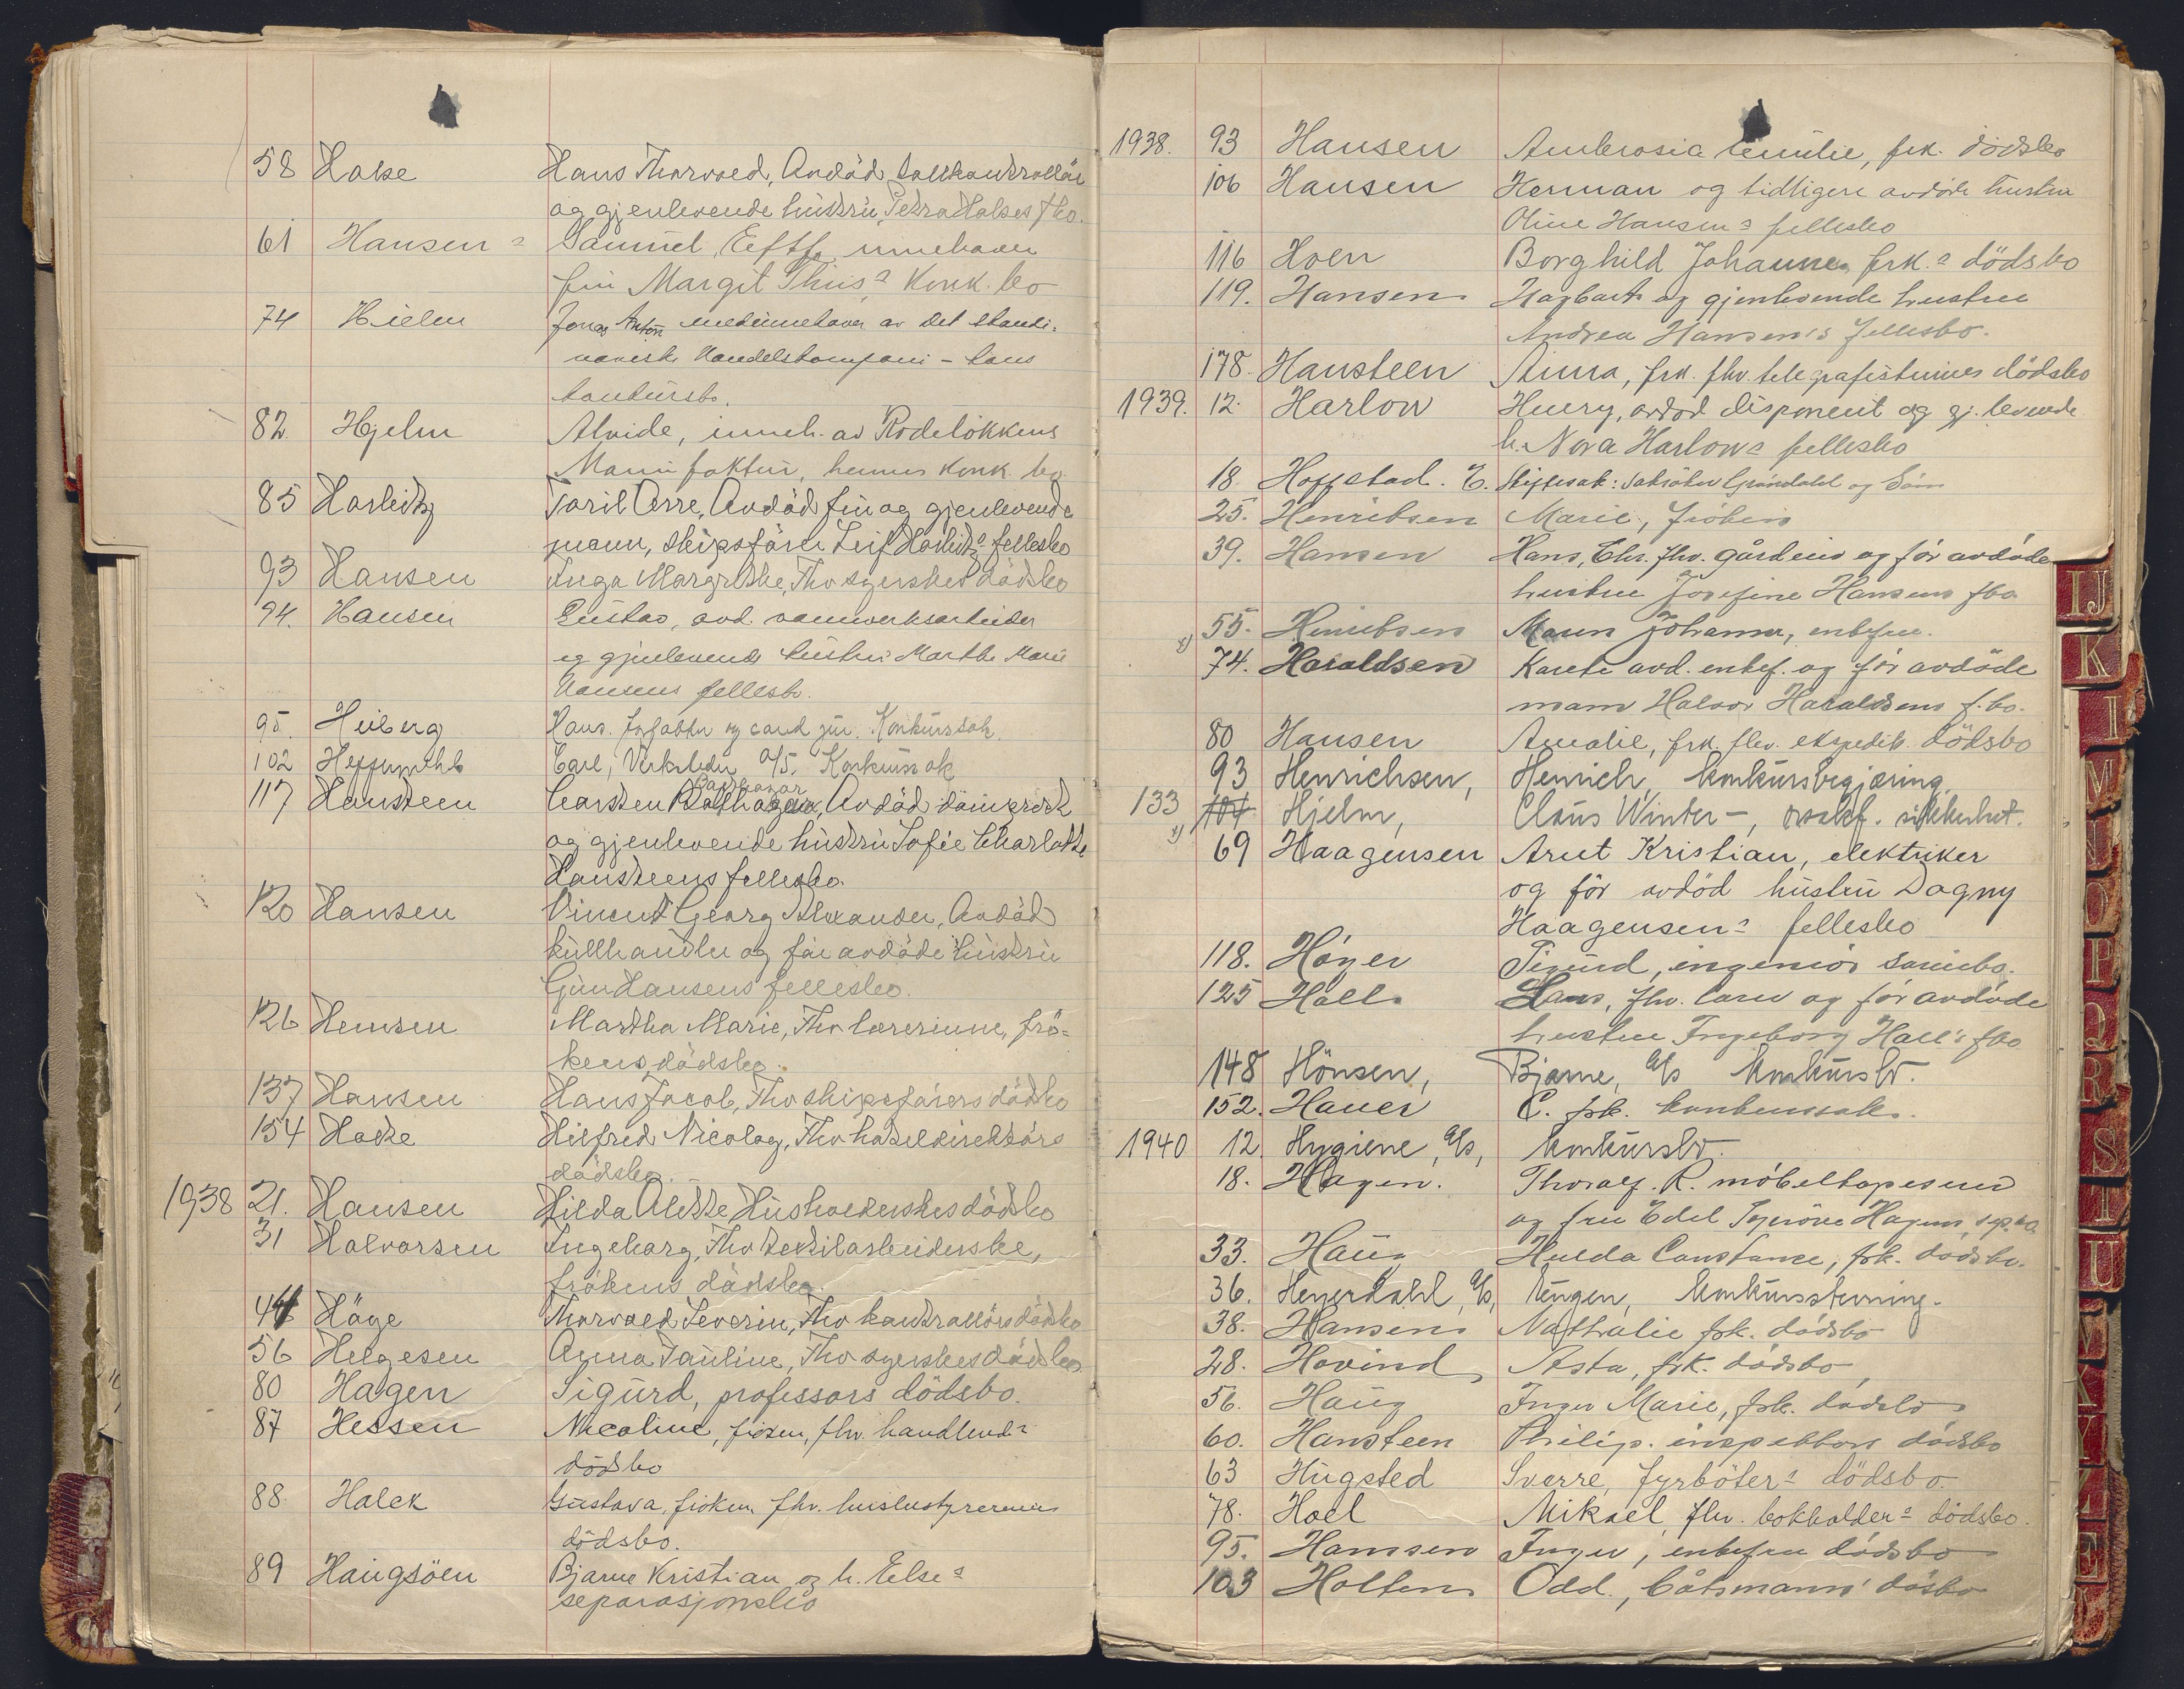 58 Halse Hans Thorvald, Avdöd tollkontrollör
og gjenlevende hustru Petra Halses fbo.
61 Hansen s Samuel, Eeftf, innehaver
fru Margit Thiis s Konk. bo
74 Hielm Jonas Anton medinnehaver av det skandi-
naviske Handelskompani - hans
konkursbo.
82. Hjelm Alvide, inneh. av Rodelökkens
Manufaktur, hennes konk. bo.
85 Harlitz Toril Arre, Avdöd fru og gjenlevende
mann, skipsförer Leif Harlitz s fellesbo
93 Hansen Inga Margrethe, Fhv syerskes dödsbo
94. Hansen Gustav, avd. vannverksarbeider
og gjenlevende hustru Marthe Marie
Hansens fellesb.
95. Heiberg Hans. forfatter og cand jur. Konkurssak.
102 Carl, A/S. Konkurssak
117 Hansteen Carsten Balthazar, Avdöd
Balthazar
og gjenlevende hustru Sofie Charlotte
Hansteens fellesbo.
120 Hansen Vincent Georg Alexander, Avdöd
kullhandler og för avdöde hustru
Gun Hansens fellesbo.
126 Hemsen Martha Marie, Fhv lærerinne, frö-
kens dödsbo.
137 Hansen Hans Jacob, Fhv skipsförers dödsbo
154 Hacke Hilfred Nicolay, Fhv hotelldirektörs
dödsbo.
1938 21. Hansen Hilda Alette, Husholderskes dödsbo
31 Halvorsen Ingeborg, Fhv tekstilarbeiderske,
frökens dödsbo.
44 Höge Thorvald Severin, Fhv kontrollörs dödsbo
56 Helgesen Anna Pauline, Fhv syerskes dödsbo
80 Hagen Sigurd, professors dödsbo.
87 Hessen Nicoline, fröken, fhv. handlende s
dödsbo
88. Halck Gustava, fröken fhv. husbestyrerinnes
dödsbo.
89 Haugsöen Bjarne Kristian og h. Else s
separasjonsbo
1938. 93 Hansen Ambrosia Emilie, frk. dödsbo
106 Hansen Herman og tidligere avdöde hustru
Oline Hansen s fellesbo
116 Hoen Borghild Johanne, frk. s dödsbo
119. Hansen Hagbart og gjenlevende hustru
Andrea Hansen's fellesbo.
178. Hansteen Anna, frk. fhv. telegrafistinnes dödsbo
1939. 12. Harlow Henry, avdöd disponent og gj. levende
h. Nora Harlow s fellesbo
18. Hoffstad. E. Skiftesak: Sakförer Gröndahl og Sön
25. Henriksen Marie, frökens
39. Hansen Hans, Chr. fhv. gårdeier og för avdöde
hustru Josefine Hansens fbo
x) 55. Henriksen Maren Johanne, enkefru.
74. Haraldsen Karete avd. enkef. og för avdöde
mann Halvor Haraldsens f. bo.
80 Hansen Amalie, frk. fhv. ekspedit. dödsbo
93 Henrichsen, Henrich, konkursbegjæring.
133 104 Hjelm, Claus Winter -, orsakf. sikkerhet.
x) 69 Haagensen Arnt Kristian, elektriker
og för avdöd hustru Dagny
Haagensen s fellesbo
118. Höyer Sigurd, ingeniör
125 Hall. Hans, fhv. og för avdöde
hustru Ingeborg Hall's fbo
148 Hönsen, Bjarne, A/s konkursbo.
152. Hauer C. frk. konkurssak.
1940 12. Hygiene, A/s, konkursbo.
18. Hagen. Thoralf. R. möbeltapeserer
og fru Edel Synöve Hagens, sep. bo.
33. Haug Hulda Constance, frk. dödsbo.
36. Heyerdahl, A/s, Jörgen, konkursstevning.
38. Hansen Nathalie frk. dödsbo
28. Hovind, Asta, frk. dödsbo
56. Haug Inger Marie, frk. dödsbo
60. Hansteen Philip. inspektörs dödsbo
63 Hugsted Sverre, fyrböter s dödsbo.
78. Hoel Mikael, fhv. bokholder s dödsbo.
95. Hansen Inger, enkefru dödsbo
103 Holten Odd., båtsmanns' dösbo
IJ
K
L
M
N
O
P
Q
R
S
T
U